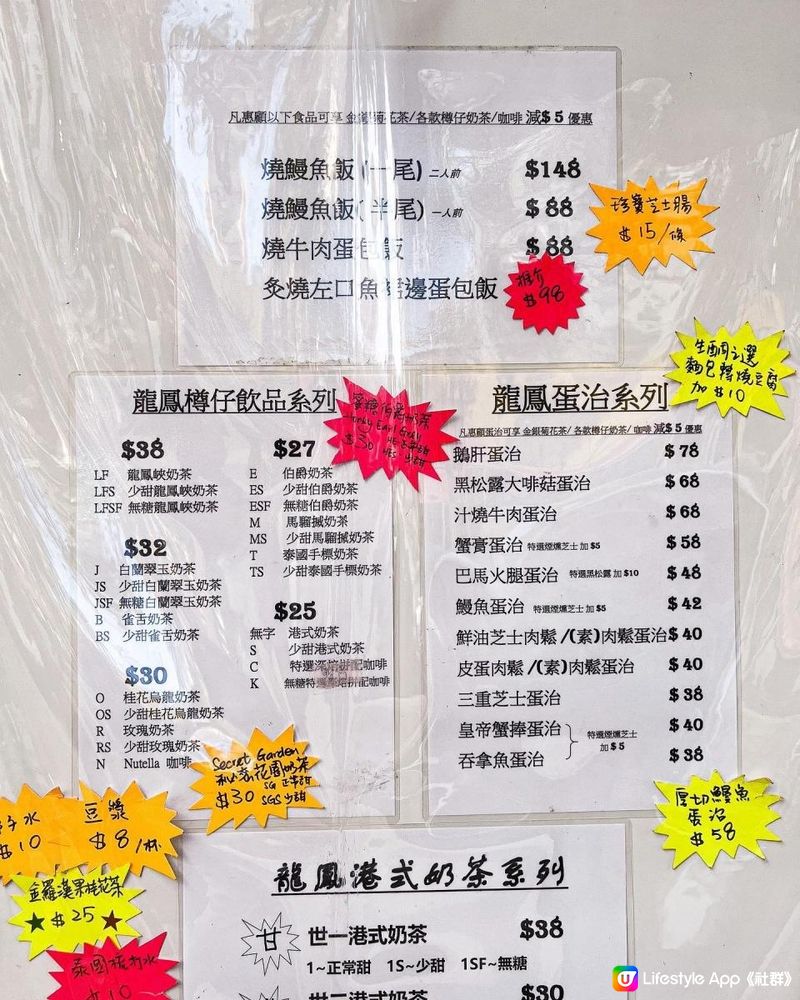 凡惠顧以下食品可享 金銀菊花茶/各款樽仔奶茶/咖啡 減$5 優惠
燒鰻魚飯 (一尾) 二人前 $148
燒鰻魚飯 (半尾) 一人前 $88
燒牛肉蛋包飯 $88
炙燒左口魚裙邊蛋包飯
推介
$98
珍寶芝士腸
$15/條
生酮之選
麵包轉燒豆腐
加$10
龍鳳樽仔飲品系列
蜜糖伯爵奶茶
Honey Earl Grey
$30 HE正常甜
HES 少甜
$38
LF 龍鳳峽奶茶
LFS 少甜龍鳳峽奶茶
LFSF 無糖龍鳳峽奶茶
$32
J 白蘭翠玉奶茶
JS 少甜白蘭翠玉奶茶
JSF 無糖白蘭翠玉奶茶
B 雀舌奶茶
BS 少甜雀舌奶茶
$30
O 桂花烏龍奶茶
OS 少甜桂花烏龍奶茶
R 玫瑰奶茶
RS 少甜玫瑰奶茶
N Nutella 咖啡
$27
E 伯爵奶茶
ES 少甜伯爵奶茶
ESF 無糖伯爵奶茶
M 馬騮搣奶茶
MS 少甜馬騮搣奶茶
T 泰國手標奶茶
TS 少甜泰國手標奶茶
$25
無字 港式奶茶
S 少甜港式奶茶
C 特選深焙拼配咖啡
K 無糖特選深焙拼配咖啡
Secret Garden
秘密花園奶茶
$30 SG 正常甜
SGS 少甜
龍鳳蛋治系列
凡惠顧蛋治可享 金銀菊花茶/ 各款樽仔奶茶/ 咖啡 減$5 優惠
鵝肝蛋治 $78
黑松露大啡菇蛋治 $68
汁燒牛肉蛋治 $68
蟹膏蛋治 特選煙燻芝士 加 $5 $58
巴馬火腿蛋治 特選黑松露 加 $10 $48
鰻魚蛋治 特選煙燻芝士 加 $5 $42
鮮油芝士肉鬆 /(素)肉鬆蛋治 $40
皮蛋肉鬆 /(素)肉鬆蛋治 $40
三重芝士蛋治 $38
皇帝蟹捧蛋治 $40
特選煙燻芝士
加 $5
吞拿魚蛋治 $38
厚切鰻魚
蛋治
$58
子水
$10
豆漿
$8/杯
金羅漢果桂花茶
★$25★
泰國梳打水
$10
龍鳳港式奶茶系列
甘 世一港式奶茶 $38
1~正常甜 1S~少甜 1SF~無糖
世二港式奶茶 $30
U Lifestyle App《社群》